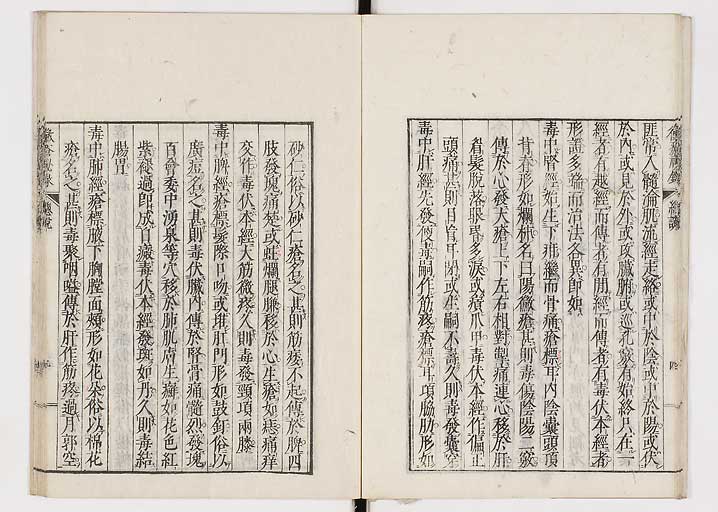 匪常入髓淪肌流經走絡或中於陰或中於陽或伏
於內或見於外或攻臟腑或巡孔竅有始終只在一
經者有越經而傳者有間經而傳者有毒伏本經者
形證多端而治法各異即如
毒中腎經始生下疳繼而骨痛瘡標耳內陰囊頭項
背脊形如爛柿名曰陽黴瘡甚則毒傷陰陽二竅
傳於心發大瘡上下左右相對掣痛連心移於肝
眉髮脫落眼昏多淚或瘡爪甲毒伏本經作偏正
頭痛甚則目盲耳閉或生嗣不壽久則毒發囊穿
毒中肝經先發便毒嗣作筋疼瘡標耳項脇肋形如
砂仁俗以砂仁瘡名之甚則筋痿不起傳於脾四
肢發塊痛楚或蛀爛腿臁移於心生瘡如痣痛痒
交作毒伏本經大筋微疼久則毒發頸項兩膝
毒中脾經瘡標髮際口吻或堆肛門形如鼓釘俗以
廣痘名之甚則毒伏臟內傳於腎骨痛髓烈發塊
百會委中湧泉等穴移於肺肌膚生癬如花色紅
紫從過即成白癜毒伏本經發斑如丹久則毒結
腸胃
毒中肺經瘡標腋下胸膛面頰形如花朵俗以棉花
瘡名之甚則毒聚咽嗌傳於肝作筋疼過月郭空
黴瘡秘錄
總說